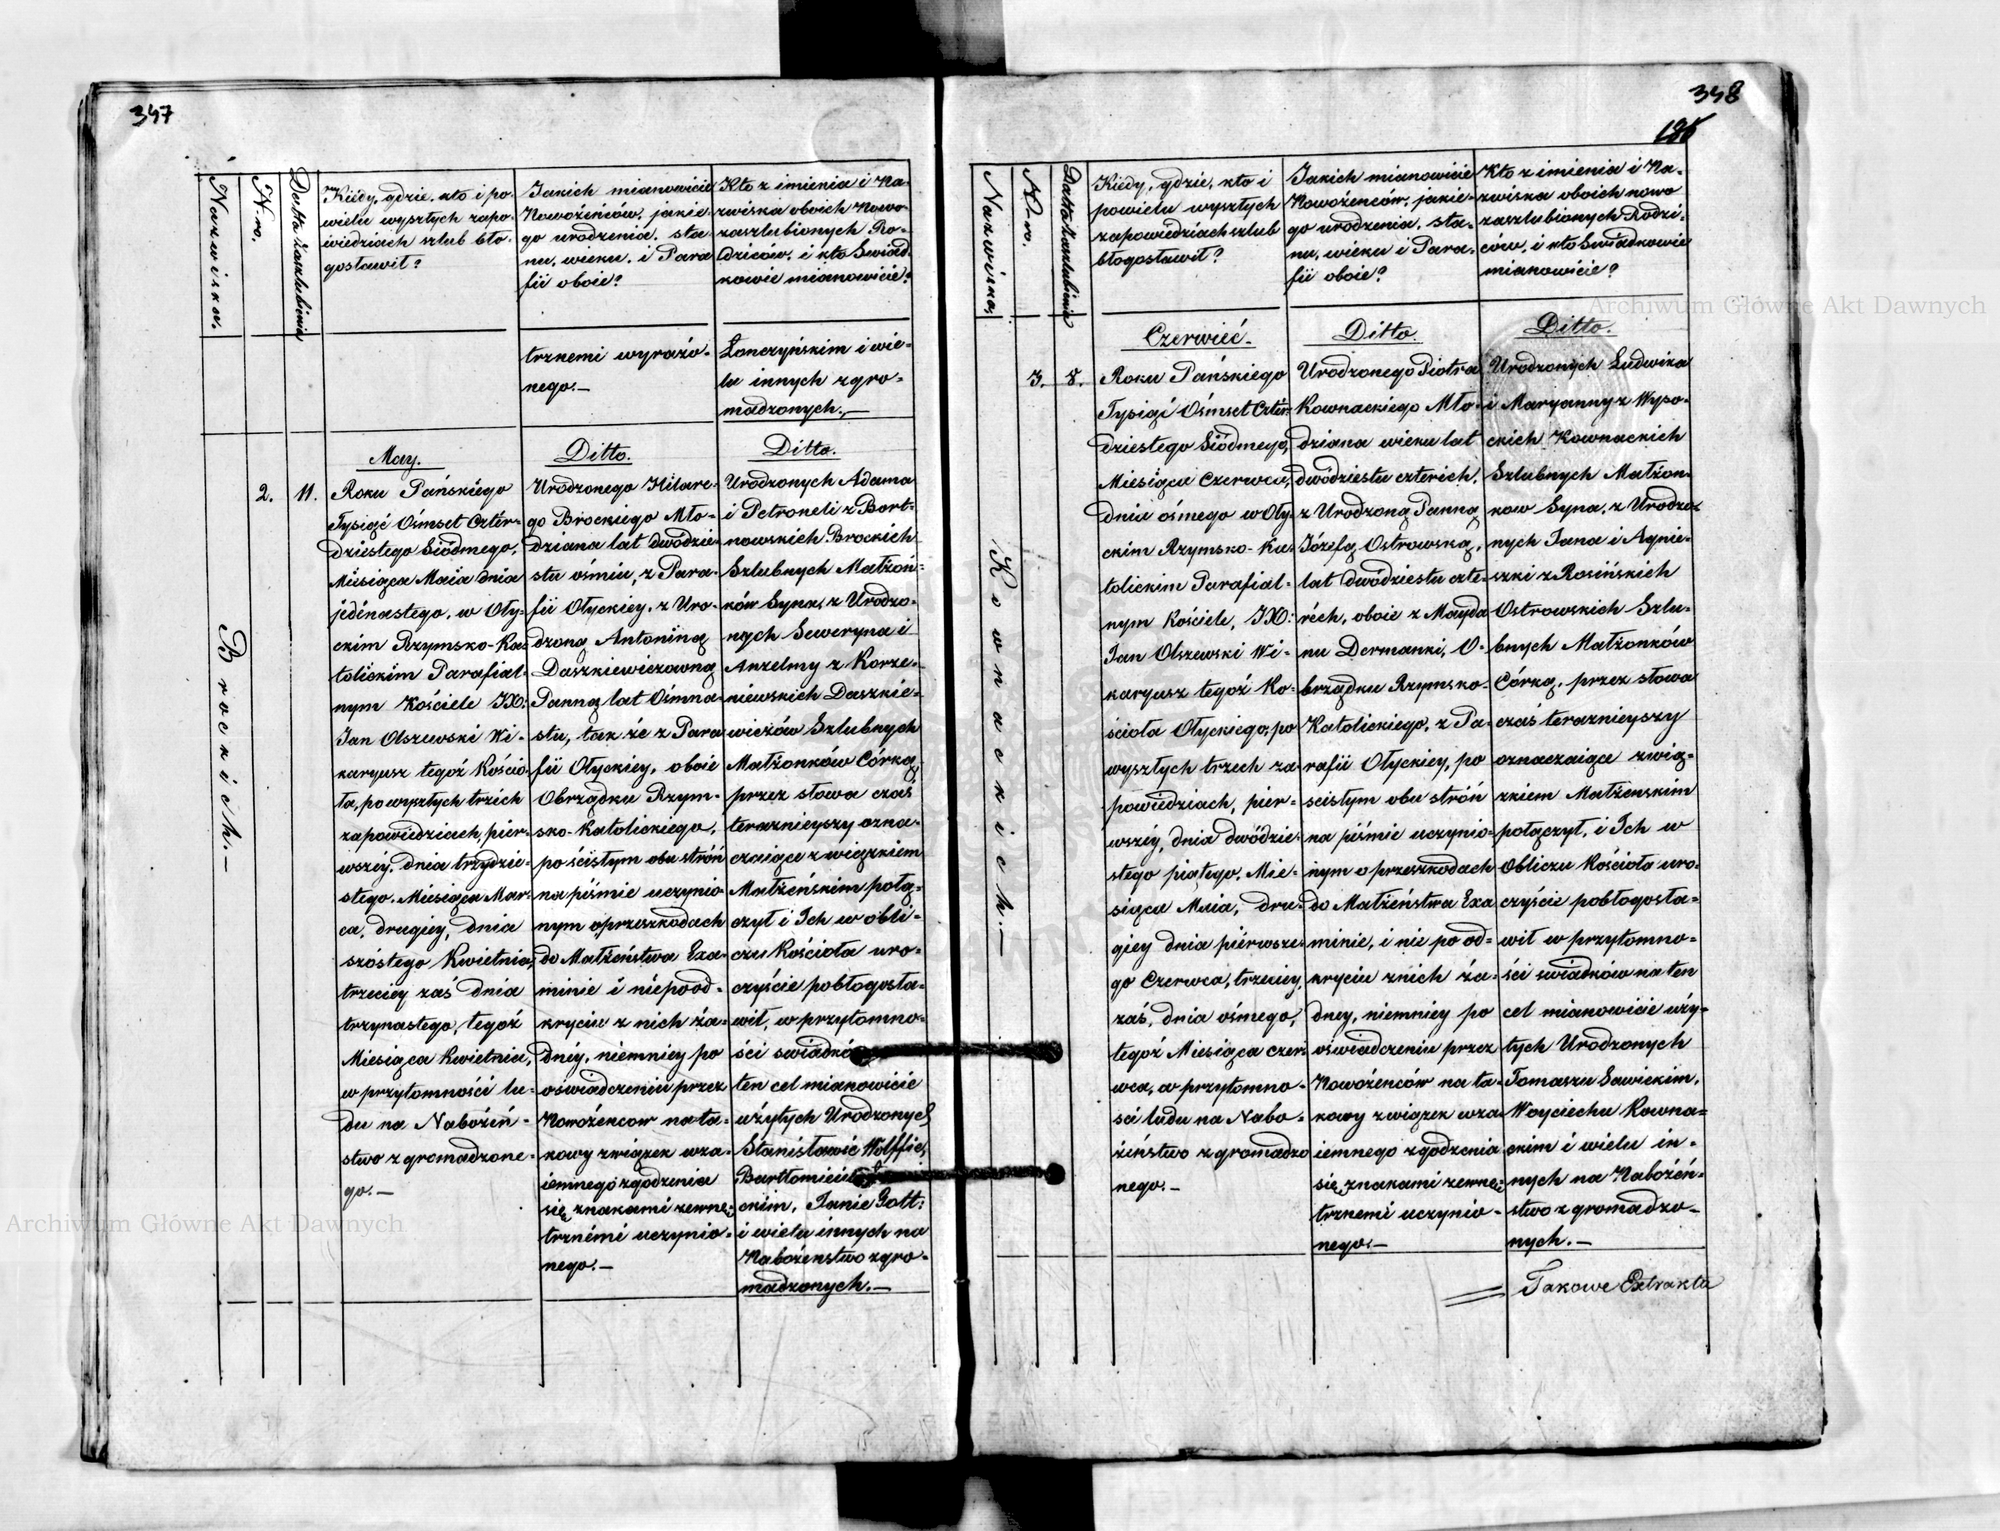 347
Nazwiska.
N-ro.
Datta Zaszlubienia
Kiedy, gdzie, kto i po-
wielu wyszłych zapo-
wiedziach szlub bło-
gosławił?
Jakich mianowicie
Nowożeńców, jakie-
go urodzenia, sta-
nu, wieku, i Para
fii oboie?
Kto z imienia i Na-
zwiska oboich Nowo-
zaszlubionych Ro-
dziców, i kto Swiad-
kowie mianowicie?
trznemi wyrażo-
nego.—
Łonczyńskim i wie-
lu innych zgro-
madzonych.—
Brockich.—
2.
11.
May.
Roku Pańskiego
Tysiąć Ośmset Czter-
dziestego Siódmego,
Miesiąca Maia dnia
jedenastego, w Oły-
ckim Rzymsko-Ka-
tolickim Parafial-
nym Kościele JX:
Jan Olszewski Wi-
karyusz tegoż Kościo-
ła, po wyszłych trzech
zapowiedziach, pier-
wszéy, dnia trzydzie-
stego, Miesiąca Mar-
ca, drugiey, dnia
szóstego Kwietnia,
trzeciey zas dnia
trzynastego, tegoż
Miesiąca Kwietnia,
w przytomności lu-
du na Nabożéń-
stwo zgromadzone-
go.—
Ditto.
Urodzonego Hilare-
go Brockiego Mło-
dziana lat dwódzie-
stu ośmiu, z Para-
fii Ołyckiey, z Uro-
dzoną Antoniną
Daszkiewiczowną
Panną lat Ośmna-
stu, tak że z Para
fii Ołyckiey, oboie
Obrządku Rzym-
sko-Katolickiego,
po ścisłym obu strón
na piśmie uczynio
nym o przeszkodach
do Małżéństwa Exa-
minie i niepood-
kryciu z nich ża-
dnéy, niemniey po
oświadczeniu przez
Nowożencow na ta-
kowy związek wza-
iemnego zgodzenia
się, znakami zewnę-
trznémi uczynio-
nego.—
Ditto.
Urodzonych Adama
i Petroneli z Bort-
nowskich Brockich
Szlubnych Małżoń-
ków Syna, z Urodzo-
nych Seweryna i
Anzelmy z Korze-
niewskich Daszkie-
wiczów Szlubnych
Małżonków Córką,
przez słowa czas
teraznieyszy ozna-
czaiące związkiem
Małżeńskim połą-
czył i Ich w obli-
czu Kościoła uro-
czyście pobłogosła-
wił, w przytomno-
ści swiadkó
ten cel mianowicie
użytych Urodzonych
Stanisławie Wolffie,
Bartłomieiu
ckim, Janie Gott:
i wielu innych na
Nabożenstwo zgro-
madzonych.—
348
186
Nazwiska.
N-ro.
Datta Zaszlubienia
Kiedy, gdzie, kto i
powielu wyszłych
zapowiedziach szlub
błogosławił?
Jakich mianowicie
Nowożenców, jakie-
go urodzenia, sta-
nu, wieku i Para-
fii oboie?
Kto z imienia i Na-
zwiska oboich nowo
zaszlubionych Rodzi-
ców, i kto Swiadkowie
mianowicie?
Kownackich.—
3.
8.
Czerwieć.
Roku Pańskiego
Tysiąć Ośmset Czter-
dziestego Siódmego,
Miesiąca Czerwca,
dnia ośmego w Oły-
ckim Rzymsko-Ka-
tolickim Parafial-
nym Kościele, JX:
Jan Olszewski Wi-
karyusz tegoż Ko-
ścioła Ołyckiego, po
wyszłych trzech za-
powiedziach, pier-
wszéy, dnia dwódzie-
stego piątego, Mie-
siąca Maia, dru-
giey dnia pierwsze-
go Czerwca, trzeciey,
zaś, dnia ośmego,
tegoż Miesiąca czer-
wca, w przytomno-
ści ludu na Nabo-
żéństwo zgromadzo
nego.—
Ditto.
Urodzonego Piotra
Kownackiego Mło-
dziana wieku lat
dwódziestu czterech,
z Urodzoną Panną
Józefą Ostrowską,
lat dwódziestu czte-
réch, oboie z Mayda
nu Dermanki, O-
brządku Rzymsko-
Katolickiego, z Pa-
rafii Ołyckiey, po
ścisłym obu strón
na piśmie uczynio-
nym o przeszkodach
do Małżéństwa Exa
minie, i nie po od-
kryciu z nich ża-
dney, niemniey po
oświadczeniu przez
Nowożenców na ta-
kowy związek wza
iemnego zgodzenia
się, znakami zewnę-
trznemi uczynio-
nego.—
Ditto.
Urodzonych Ludwika
i Maryanny z Wyso-
ckich Kownackich
Szlubnych Małżon-
kow Syna, z Urodzo-
nych Jana i Agnie-
szki z Rosińskich
Ostrowskich Szlu-
bnych Małżonków
Córką, przez słowa
czas teraznieyszy
oznaczaiące zwią-
zkiem Małżenskim
połączył, i Ich w
Obliczu Kościoła uro-
czyście pobłogosła-
wił w przytomno-
ści swiadków na ten
cel mianowicie uży-
tych Urodzonych
Tomaszu Sawickim,
Woyciechu Kowna-
ckim i wielu in-
nych na Nabożéń-
stwo zgromadzo-
nych.—
Takowe Extrakta
Archiwum Główne Akt Dawnych
Archiwum Główne Akt Dawnych